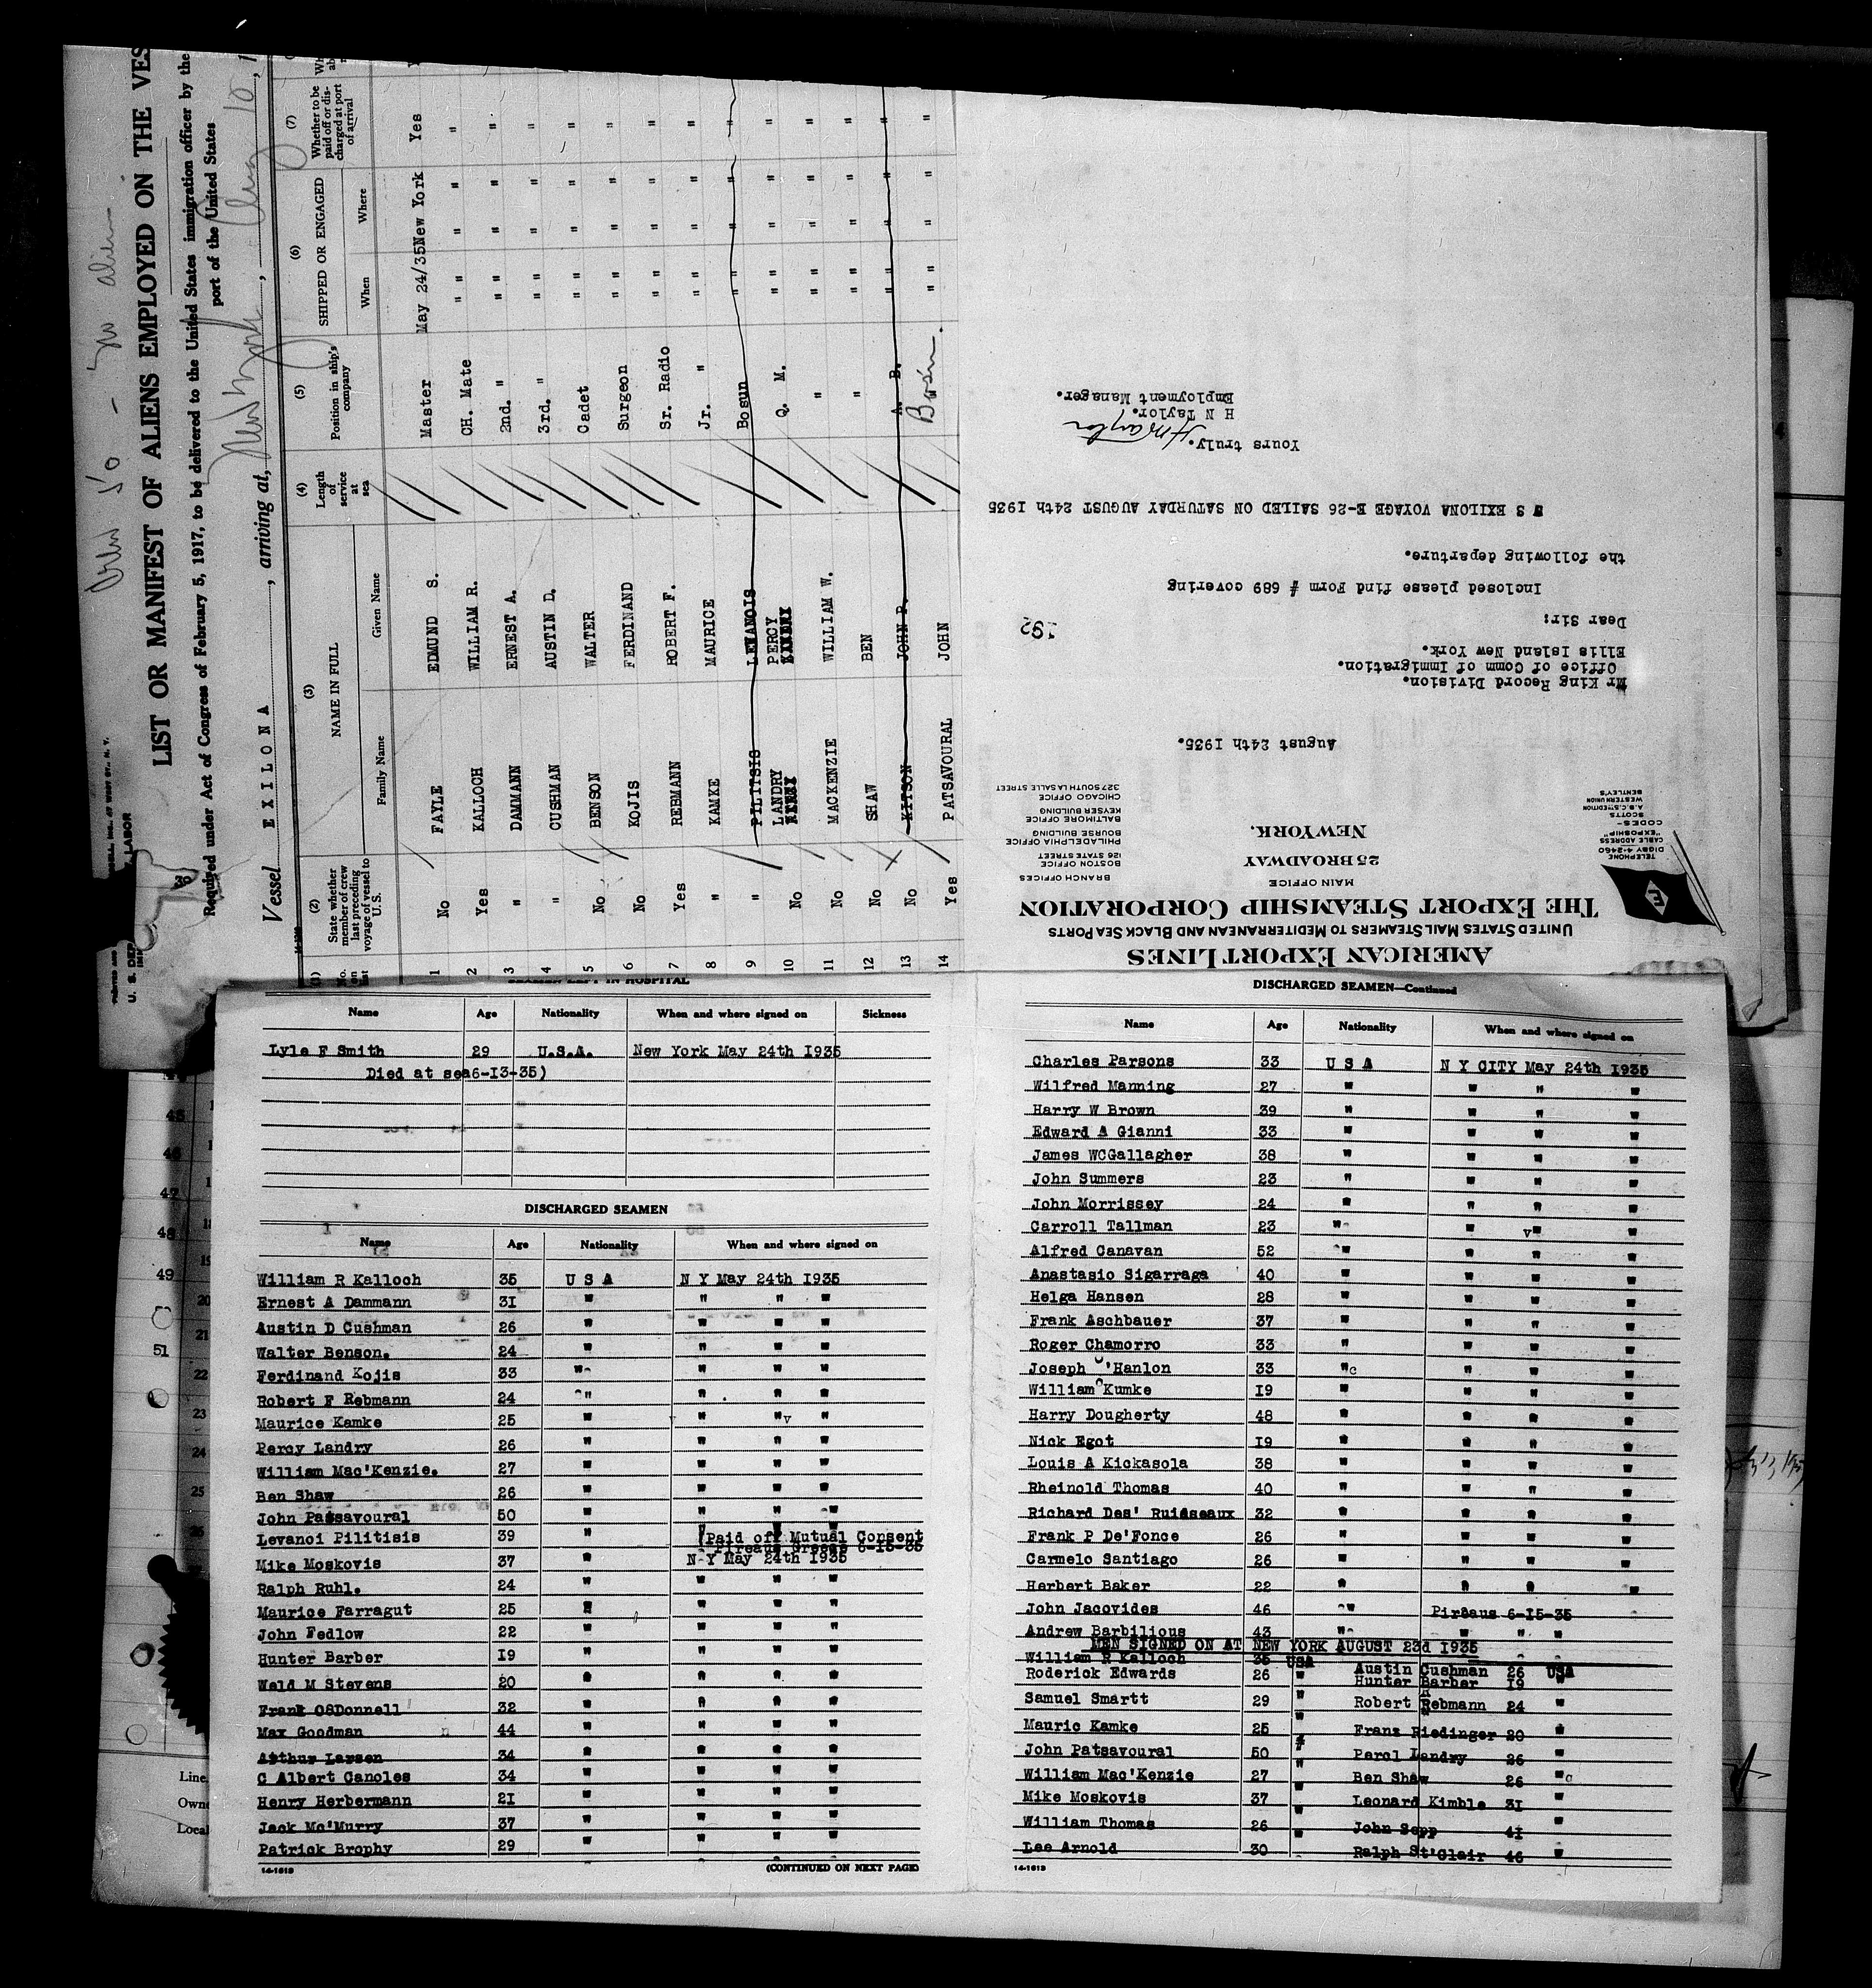 LIST OR MANIFEST OF ALIENS EMPLOYED ON THE VES
Required under Act of Congress of February 5, 1917, to be delivered to the United States immigration officer by the
port of the United States
Vessel EXILONA, arriving at, New York, Aug 10, 1
(2) State whether member of crew last preceding voyage of vessel to U.S.
(3) NAME IN FULL
Family Name Given Name
(4) Length of service at sea
(5) Position in ship's company
(6) SHIPPED OR ENGAGED
When Where
(7) Whether to be paid off or discharged at port of arrival
1 No FAYLE EDMUND S. Master May 24/35 New York Yes
2 Yes KALLOCH WILLIAM R. CH. Mate " " " " "
3 " DAMMANN ERNEST A. 2nd. " " " " " "
4 " CUSHMAN AUSTIN D. 3rd. " " " " " "
5 No BENSON WALTER Cadet " " " " "
6 No KOJIS FERDINAND Surgeon " " " " "
7 Yes REBMANN ROBERT F. Sr. Radio " " " " "
8 " KAMKE MAURICE Jr. " " " " " "
9 " PILITSIS LEVANOIS Bosun " " " " "
10 No LANDRY PERCY Q. M. " " " " "
11 No MACKENZIE WILLIAM W. " " " " " "
12 No SHAW BEN " " " " " "
13 No KITSON JOHN P. A. B. " " " " "
14 Yes PATSAVOURAL JOHN Bosn. " " " " "
AMERICAN EXPORT LINES
UNITED STATES MAIL STEAMERS TO MEDITERRANEAN AND BLACK SEA PORTS
THE EXPORT STEAMSHIP CORPORATION
MAIN OFFICE
25 BROADWAY
NEW YORK.
TELEPHONE
DIGBY 4-2460
CABLE ADDRESS
"EXPOSHIP"
CODES-
SCOTTS
A.B.C. 5TH EDITION
WESTERN UNION
BENTLEY'S
BRANCH OFFICES
BOSTON OFFICE
126 STATE STREET
PHILADELPHIA OFFICE
BOURSE BUILDING
BALTIMORE OFFICE
KEYSER BUILDING
CHICAGO OFFICE
327 SOUTH LASALLE STREET
August 24th 1935.
Mr King Record Division.
Office of Comm of Immigration.
Ellis Island New York.
Dear Sir:
192
Inclosed please find Form # 689 covering
the following departure.
S S EXILONA VOYAGE E-26 SAILED ON SATURDAY AUGUST 24th 1935
Yours truly.
H N Taylor
H N Taylor.
Employment Manager.
Name Age Nationality When and where signed on Sickness
Lyle F Smith 29 U.S.A. New York May 24th I935
Died at sea6-I3-35)
DISCHARGED SEAMEN
Name Age Nationality When and where signed on
William R Kalloch 35 U S A N Y May 24th I935
Ernest A Dammann 3I " " " "
Austin D Cushman 26 " " " "
Walter Benson. 24 " " " "
Ferdinand Kojis 33 " " " "
Robert F Rebmann 24 " " " "
Maurice Kamke 25 " " " "
Percy Landry 26 " " " "
William Mac'Kenzie. 27 " " " "
Ben Shaw 26 " " " "
John Patsavoural 50 " " " "
Levanoi Pilitisis 39 " (Paid off Mutual Consent
Pireaus Greece 6-I5-35
Mike Moskovis 37 " N-Y May 24th I935
Ralph Ruhl. 24 " " " "
Maurice Farragut 25 " " " "
John Fedlow 22 " " " "
Hunter Barber I9 " " " "
Weld M Stevens 20 " " " "
Frank O8Donnell 32 " " " "
Max Goodman 44 " " " "
Arthur Larsen 34 " " " "
C Albert Canoles 34 " " " "
Henry Herbermann 2I " " " "
Jack Mc'Murry 37 " " " "
Patrick Brophy 29 " " " "
14-1613 (CONTINUED ON NEXT PAGE)
DISCHARGED SEAMEN—Continued
Name Age Nationality When and where signed on
Charles Parsons 33 U S A N Y CITY May 24th I935
Wilfred Manning 27 " " " "
Harry W Brown 39 " " " "
Edward A Gianni 33 " " " "
James WCGallagher 38 " " " "
John Summers 23 " " " "
John Morrissey 24 " " " "
Carroll Tallman 23 " " " "
Alfred Canavan 52 " " " "
Anastasio Sigarraga 40 " " " "
Helga Hansen 28 " " " "
Frank Aschbauer 37 " " " "
Roger Chamorro 33 " " " "
Joseph O'Hanlon 33 " " " "
William Kumke I9 " " " "
Harry Dougherty 48 " " " "
Nick Egot I9 " " " "
Louis A Kickasola 38 " " " "
Rheinold Thomas 40 " " " "
Richard Des' Ruisseaux 32 " " " "
Frank P De'Fonce 26 " " " "
Carmelo Santiago 26 " " " "
Herbert Baker 22 " " " "
John Jacovides 46 " Piraeus 6-I5-35
Andrew Barbilious 43 " " " "
MEN SIGNED ON AT NEW YORK AUGUST 23d I935
William R Kalloch 35 USA
Roderick Edwards 26 " Austin Cushman 26 USA
Hunter Barber I9 "
Samuel Smartt 29 " Robert Rebmann 24 "
Mauric Kamke 25 " Franz Riedinger 20 "
John Patsavoural 50 " Percl Landry 26 "
William Mac'Kenzie 27 " Ben Shaw 26 "
Mike Moskovis 37 " Leonard Kimble 3I "
William Thomas 26 " John Sepp 4I "
Lee Arnold 30 Ralph St'Clair 46 "
14-1613